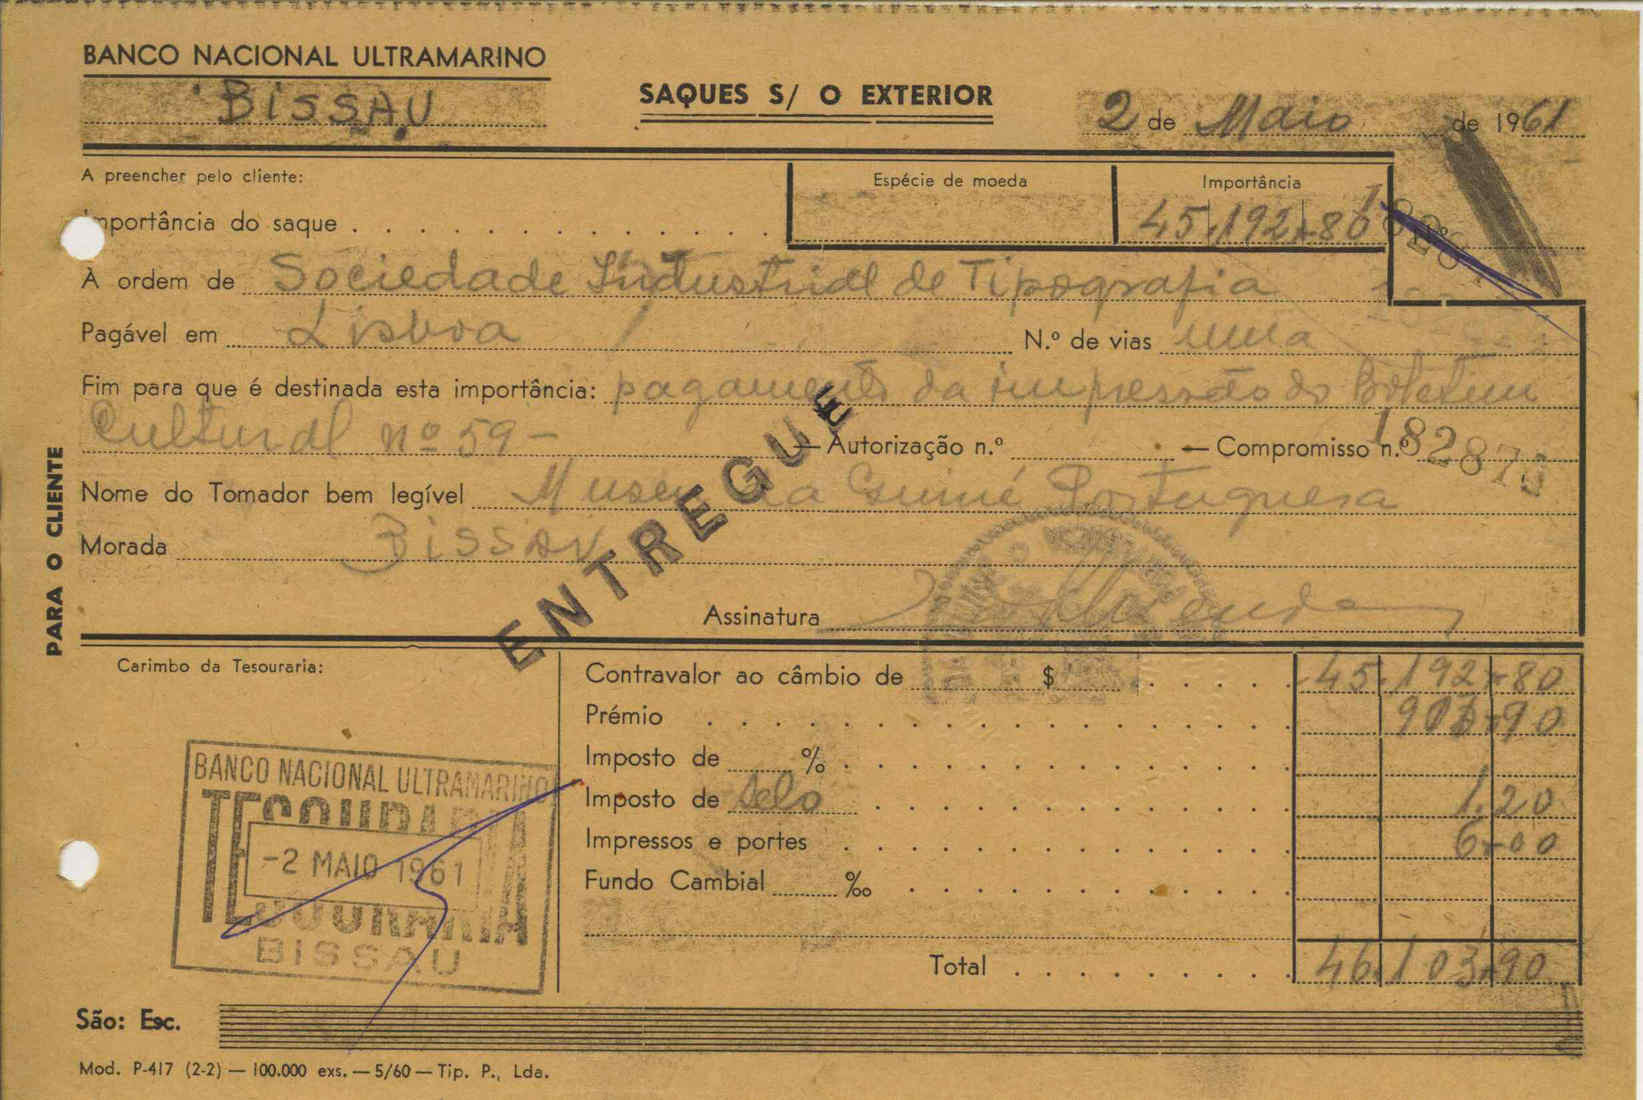 BANCO NACIONAL ULTRAMARINO
BISSAU
SAQUES S/ O EXTERIOR
2 de Maio de 1961
A preencher pelo cliente:
Espécie de moeda
Importância
Importância do saque
45.192$80
À ordem de Sociedade Industrial de Tipografia
Pagável em Lisboa N.º de vias uma
Fim para que é destinada esta importância: pagamento da impressão do Boletim
Cultural nº 59 — Autorização n.º — Compromisso n.º 182873
Nome do Tomador bem legível Museu da Guiné Portuguesa
Morada Bissau
ENTREGUE
Assinatura
PARA O CLIENTE
Carimbo da Tesouraria:
BANCO NACIONAL ULTRAMARINO
TESOURARIA
-2 MAIO 1961
TESOURARIA
BISSAU
Contravalor ao câmbio de $ 45.192$80
Prémio 903$90
Imposto de %
Imposto de selo 1.20
Impressos e portes 6$00
Fundo Cambial ‰
Total 46.103$90
São: Esc.
Mod. P-417 (2-2) — 100.000 exs. — 5/60 — Tip. P., Lda.